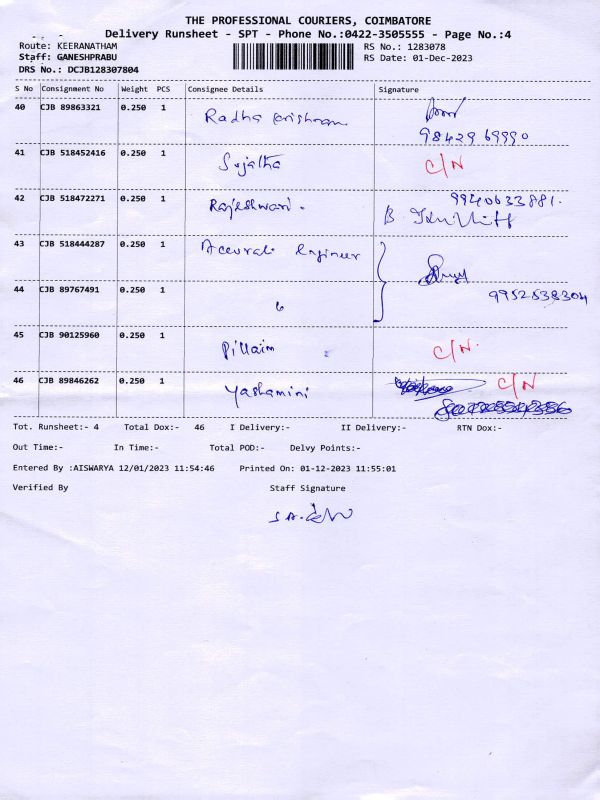 THE PROFESSIONAL COURIERS, COIMBATORE
Delivery Runsheet - SPT - Phone No.:0422-3505555 - Page No.:4
Route: KEERANATHAM RS No.: 1283078
Staff: GANESHPRABU RS Date: 01-Dec-2023
DRS No.: DCJB128307804
S No Consignment No Weight PCS Consignee Details Signature
40 CJB 89863321 0.250 1 Radha krishnan
98429 69990
41 CJB 518452416 0.250 1 Sujatha C/N
42 CJB 518472271 0.250 1 Rajeshwari. 9940633881.
B
43 CJB 518444287 0.250 1 Accurate Engineer
44 CJB 89767491 0.250 1 9952838304
45 CJB 90125960 0.250 1 Pillaim C/N.
46 CJB 89846262 0.250 1 Yashamini C/N
Tot. Runsheet:- 4 Total Dox:- 46 I Delivery:- II Delivery:- RTN Dox:-
Out Time:- In Time:- Total POD:- Delvy Points:-
Entered By :AISWARYA 12/01/2023 11:54:46 Printed On: 01-12-2023 11:55:01
Verified By Staff Signature